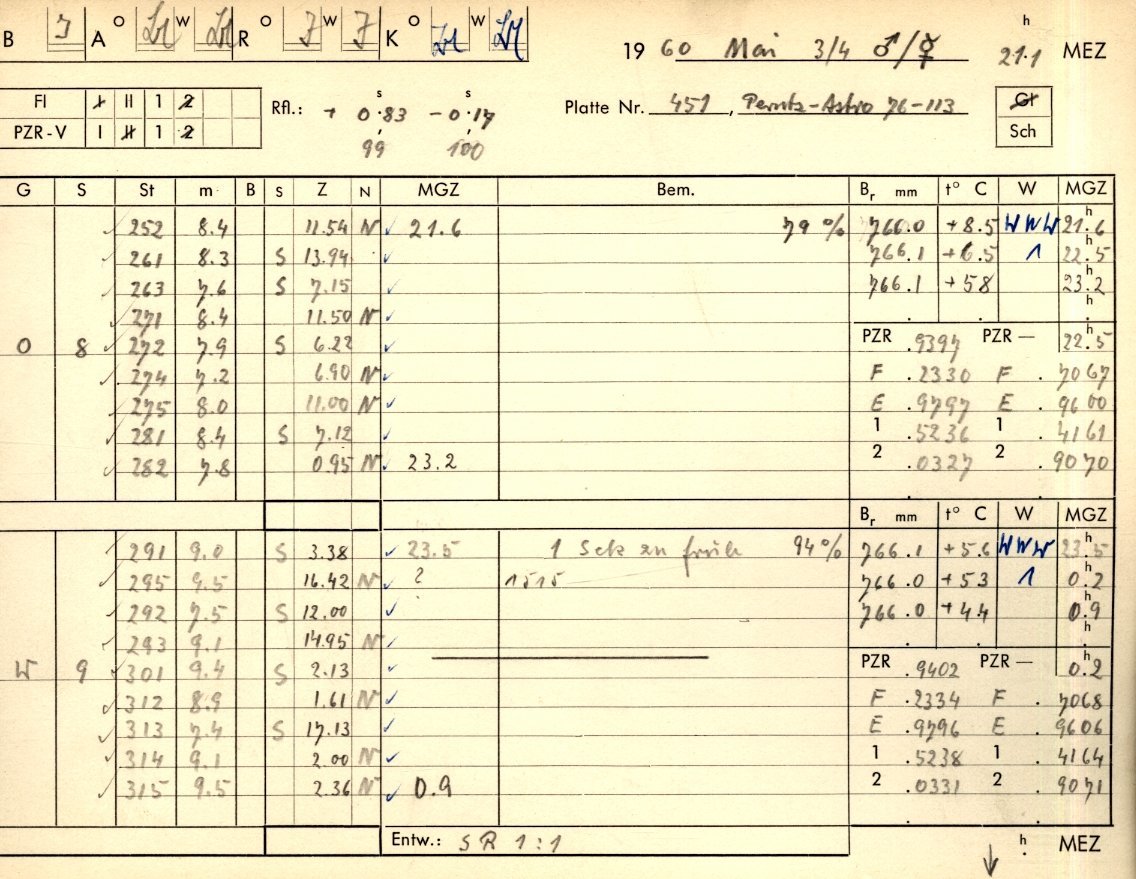 B J A O W R O J W J K O W
h
1960 Mai 3/4 ♂/☿ 21.1 MEZ
Fl I II 1 2
PZR-V I II 1 2
Rfl.: + 0ˢ.83 - 0ˢ.17
99 100
Platte Nr. 451, Perutz-Astro 76-113
Gl
Sch
G S St m B S Z N MGZ Bem. Br mm t° C W MGZ
252 8.4 11.54 N 21.6 79% 766.0 +8.5 WNW 21.6
261 8.3 S 13.94 766.1 +6.5 1 22.5
263 7.6 S 7.15 766.1 +5.8 23.2
271 8.4 11.50 N
O 8 272 7.9 S 6.22 PZR .9397 PZR— 22.5
274 7.2 6.90 N F .2330 F .7067
275 8.0 11.00 N E .9797 E .9600
281 8.4 S 7.12 1 .5236 1 .4161
282 7.8 0.95 N 23.2 2 .0327 2 .9070
Br mm t° C W MGZ
291 9.0 S 3.38 23.5 1 Sek zu früh 94% 766.1 +5.6 WNW 23.5
295 9.5 16.42 N ? 1515 766.0 +5.3 1 0.2
292 7.5 S 12.00 766.0 +4.4 0.9
293 9.1 14.95 N
W 9 301 9.4 S 2.13 PZR .9402 PZR— 0.2
312 8.9 1.61 N F .2334 F .7068
313 7.4 S 17.13 E .9796 E .9606
314 9.1 2.00 N 1 .5238 1 .4164
315 9.5 2.36 N 0.9 2 .0331 2 .9071
Entw.: SR 1:1 h MEZ